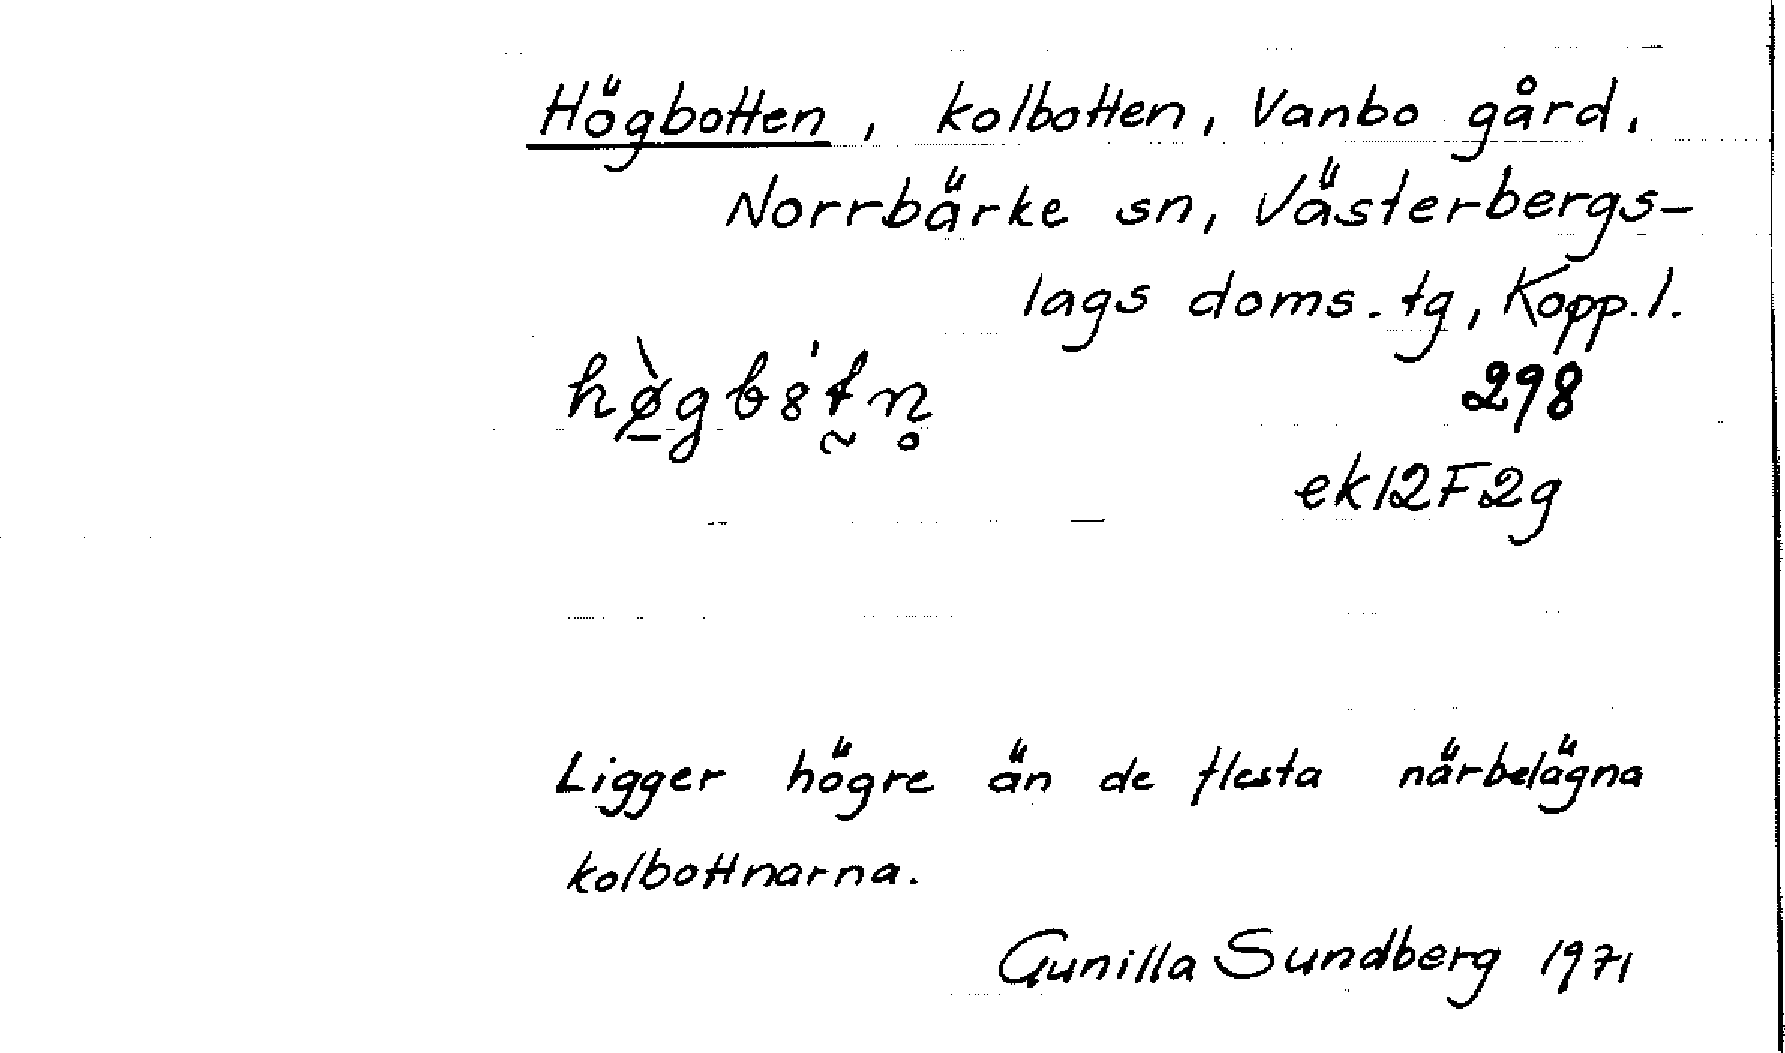 Högbotten, kolbotten, Vanbo gård,
Norrbärke sn, Västerbergs-
lags doms.tg, Kopp.l.
298
ek12F2g
Ligger högre än de flesta närbelägna
kolbottnarna.
Gunilla Sundberg 1971